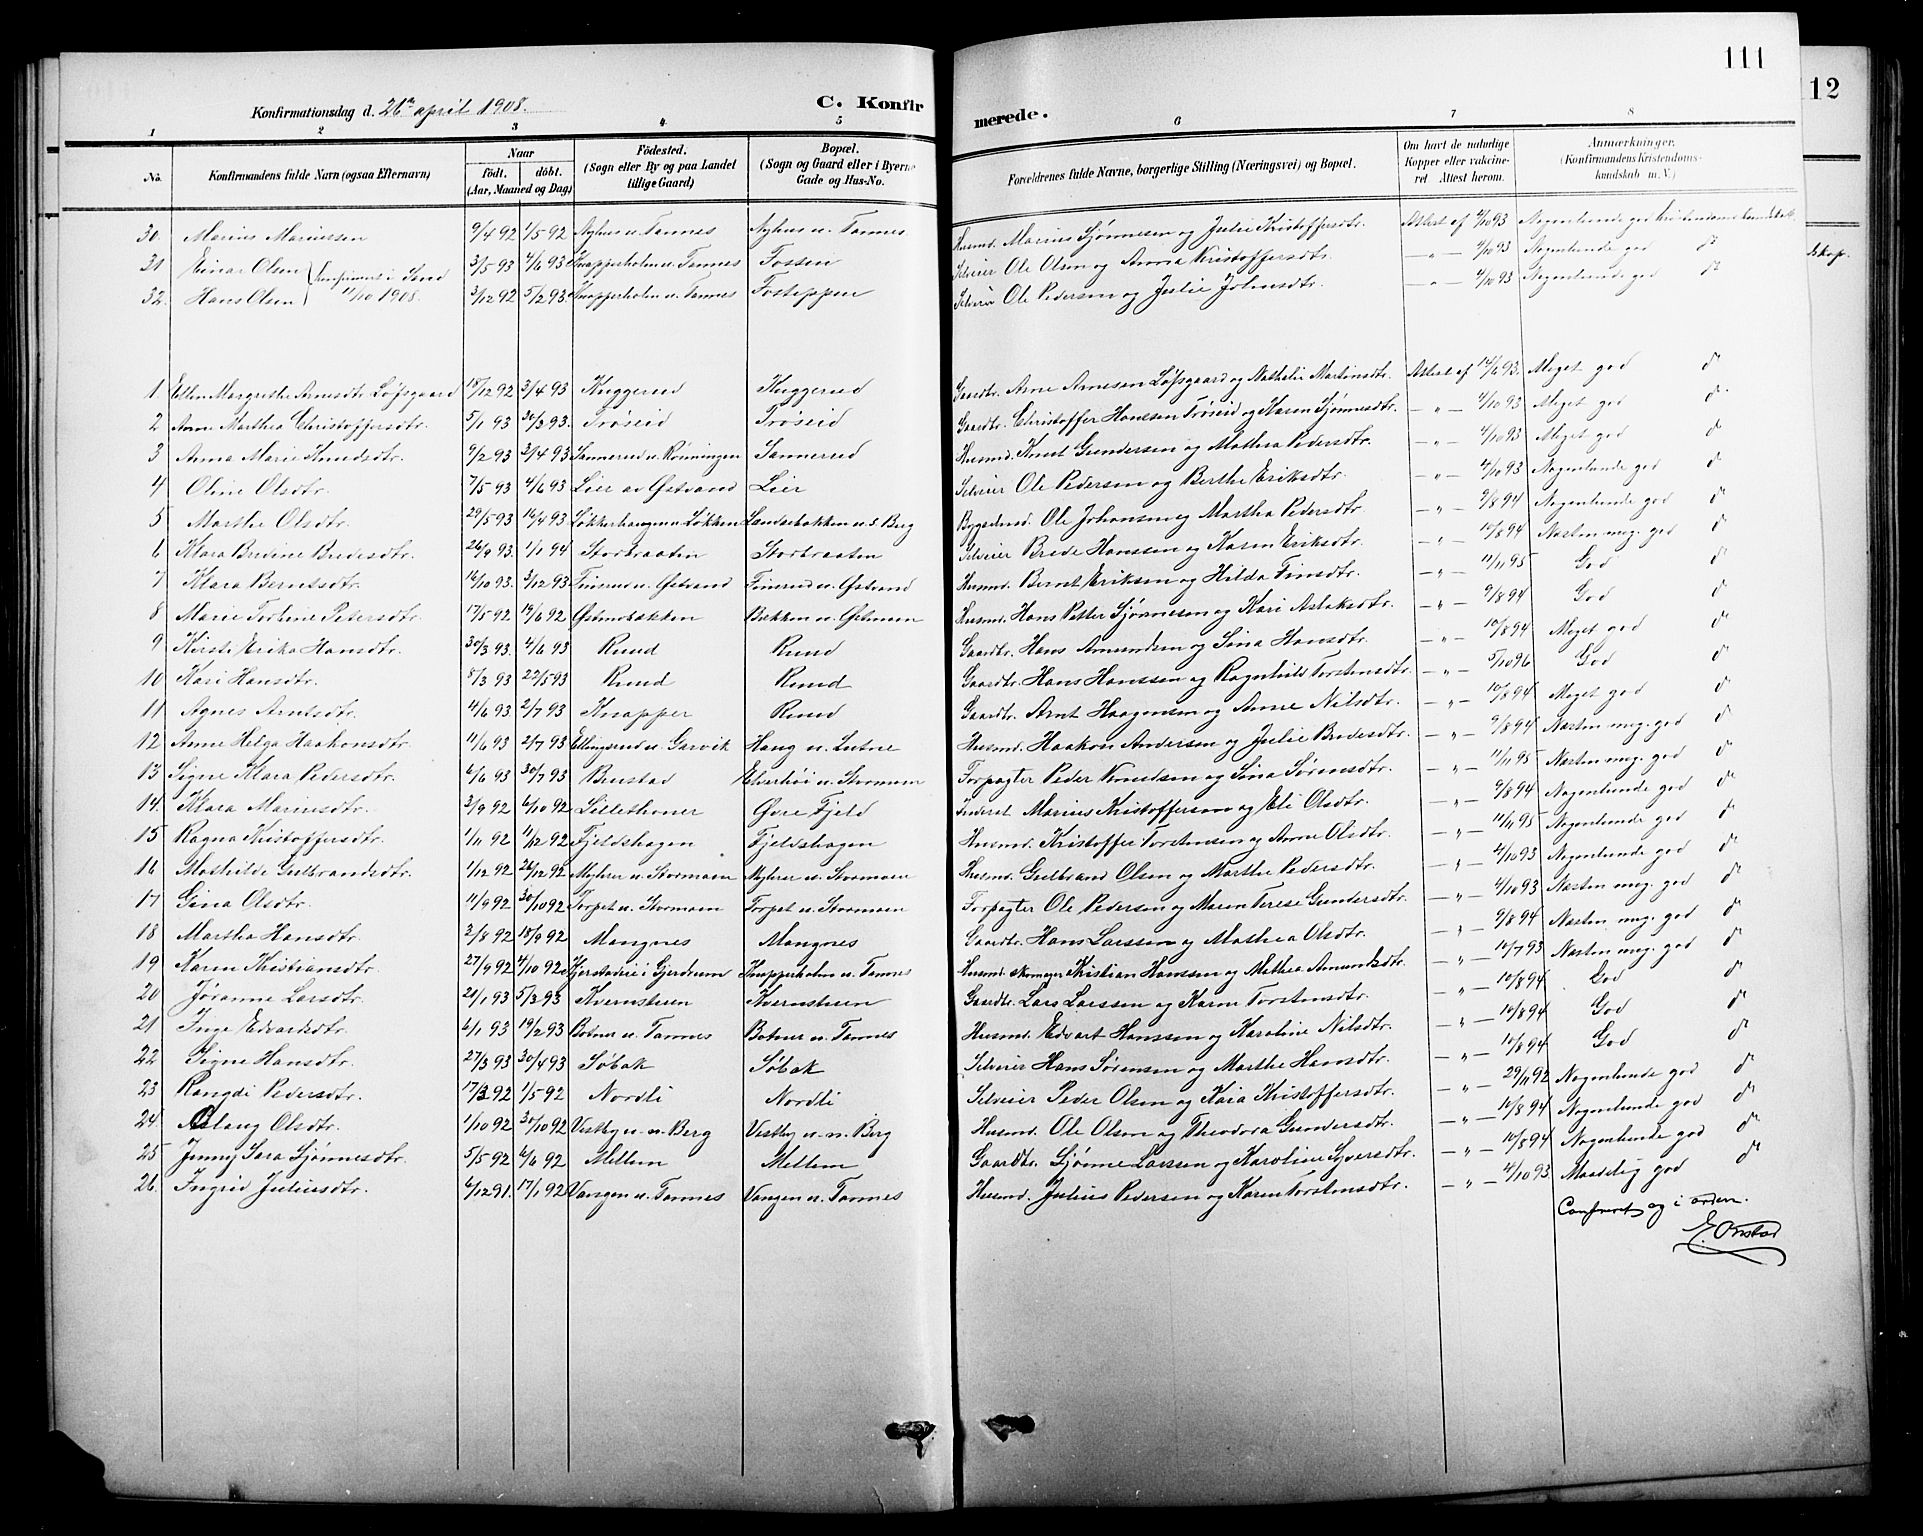 111
12
Konfirmationsdag d. 26de april 1908.
C. Konfir
merede.
1 2 3 4 5 6 7 8
No. Konfirmandens fulde Navn (ogsaa Efternavn) Naar födt. döbt. (Aar, Maaned og Dag) Födested. (Sogn eller By og paa Landet tillige Gaard) Bopæl. (Sogn og Gaard eller i Byerne Gade og Hus-No. Forældrenes fulde Navne, borgerlige Stilling (Næringsvei) og Bopæl. Om havt de naturlige Kopper eller vakcineret Attest herom. Anmærkninger. (Konfirmandens Kristendomskundskab m. V.)
30. Marius Mariussen 9/4 92 1/5 92 Myhus u. Tannes Myhus u. Tannes Husmd. Marius Sjønnesen og Julie Kristoffersdtr. Attest af 4/10 93 Nogenlunde god kristendomskundskab
31 Einar Olsen 3/5 93 4/6 93 Knapperholen u. Tannes Fossen Selveier Ole Olsen og Anna Kristoffersdtr. — " — 4/10 93 Nogenlunde god do
32. Hans Olsen konfirmert i Sand 11/10 1908. 3/12 92 5/2 93 Knapperholen u. Tannes Fosteppen Selveier Ole Pedersen og Julie Johnsdtr. — " — 4/10 93 Nogenlunde god do
1 Ellen Margrethe Arnesdtr Løfsgaard 18/12 92 3/4 93 Kuggerud Kuggerud Gaardbr. Arne Arnesen Løfsgaard og Mathilie Martinsdtr. Attest af 14/6 93. Meget god do
2 Anne Marthea Christoffersdtr. 5/1 93 26/3 93. Trøseid Trøseid Gaardbr. Christoffer Hanssen Trøseid og Karen Sjønnesdtr. — " — 4/10 93 Meget god do
3 Anna Marie Knudsdtr. 9/2 93 2/4 93 Sannerud u. Rønningen Sannerud Husmd. Knut Gundersen og Mathea Pedersdtr. — " — 4/10 93 Meget god do
4 Oline Olsdtr. 7/5 93 4/6 93 Lier av Østvand Lier Selveier Ole Pedersen og Berthe Eriksdtr. — " — 4/10 93 Nogenlunde god do
5 Marthe Olsdtr. 29/5 93 16/4 93 Løkkerhaugen u. Løkken Sandebakken u. s. Berg Bygselmd. Ole Johansen og Martha Pedersdtr — " — 9/8 94 Nogenlunde god do
6 Klara Bredine Bredesdtr. 26/9 93. 1/1 94 Storbraaten Storbraaten Selveier Brede Hanssen og Karen Eriksdtr. — " — 10/8 94 Næsten meg. god do
7 Klara Berntsdtr. 16/10 93. 3/12 93 Finsrud u. Østvand Finsrud u. Østvand Husmd. Bernt Eriksen og Hilda Finsdtr. — " — 11/11 95 God do
8 Marie Torline Petersdtr. 17/5 92 19/6 92 Østmobakken Bækken u. Østmoen Husmd. Hans Petter Sjønnesen og Kari Aslaksdtr. — " — 9/8 94 God do
9 Kirsti Erika Hansdtr. 30/3 93. 4/6 93 Ruud Ruud Gaardbr. Hans Amundsen og Sina Hansdtr. — " — 10/8 94 Meget god do
10 Kari Hansdtr. 8/3 93 22/5 93 Ruud Ruud Gaardbr. Hans Hanssen og Ragnhild Torstensdtr. — " — 5/10 96 God do
11 Agnes Arntsdtr. 4/6 93 2/7 93 Knapper Ruud Gaardbr. Arnt Haagensen og Anne Nilsdtr. — " — 10/8 94 Meget god do
12 Anne Helga Haakonsdtr. 11/6 93 2/7 93 Ellingsrud u. Garvik Haug u. Lutne Husmd. Haakon Andersen og Julie Bredesdtr. — " — 9/8 94 Næsten meg. god do
13 Signe Klara Pedersdtr. 6/6 93 30/7 93 Brustad Elverhöi u. Stormoen Forpagter Peder Knudsen og Sina Sørensdtr. — " — 11/11 95 Næsten meg. god do
14. Klara Mariusdtr. 3/9 92 6/10 92 Lillethoner Øvre Fjeld Inderst Marius Kristoffersen og Eli Olsdtr. — " — 9/8 94 Nogenlunde god do
15 Ragna Kristoffersdtr. 1/11 92 11/12 92 Fjeldshagen Fjeldshagen Husmd. Kristoffer Torstensen og Anne Olsdtr. — " — 11/11 95 Nogenlunde god do
16 Mathilde Gulbrandsdtr. 1/12 92 26/12 92 Myhrer u. Stormoen Myhrer u. Stormoen Husmd. Gulbrand Olsen og Marthe Pedersdtr. — " — 4/10 93 Nogenlunde god do
17 Gina Olsdtr. 11/9 92 30/10 92 Torpet u. Stormoen Torpet u. Stormoen Forpagter Ole Pedersen og Maren Terese Gundersdtr. — " — 4/10 93 Næsten meg. god do
18 Martha Hansdtr. 3/8 92 18/9 92 Mangnes Mangnes Gaardbr. Hans Larssen og Mathea Olsdtr. — " — 9/8 94 Næsten meg. god do
19 Karen Kristiansdtr. 27/9 92 4/10 92 Kjerstadeie i Gjerdrum Knapperholen u. Tannes Husmd. skomager Kristian Hanssen og Mathea Amundsdtr. — " — 10/7 93 Næsten meg. god do
20 Jøranne Larsdtr. 20/1 93 5/3 93 Kvernstuen Kvernstuen Gaardbr. Lars Larssen og Karen Torstensdtr. — " — 10/8 94 God do
21 Inga Edvardsdtr. 6/1 93 19/2 93 Botner u. Tannes Botner u. Tannes Husmd. Edvart Hanssen og Karoline Nilsdtr. — " — 10/8 94 God do
22 Signe Hansdtr. 27/3 93 30/4 93 Søbak Søbak Selveier Hans Sørensen og Marthe Hansdtr. — " — 10/8 94 God do
23 Rangdi Pedersdtr. 17/3 92 1/5 92 Nordli Nordli Selveier Peder Olsen og Kaia Kristoffersdtr. — " — 29/11 92 Nogenlunde god do
24. Aslaug Olsdtr. 1/10 92 30/10 92 Vestby u. n. Berg Vestby u. n. Berg Husmd. Ole Olsen og Theodora Gundersdtr. — " — 10/8 94 Nogenlunde god do
25 Jenny Sara Sjønnesdtr. 5/5 92 6/6 92 Mellem Mellem Gaardbr. Sjønne Larssen og Karoline Syversdtr. — " — 10/8 94 Nogenlunde god do
26. Ingrid Juliusdtr. 6/12 91. 17/1 92 Vangen u. Tannes Vangen u. Tannes Husmd. Julius Pedersen og Karen Torstensdtr. — " — 4/10 93 Maadelig god do
Confereret og i orden.
E. Onstad